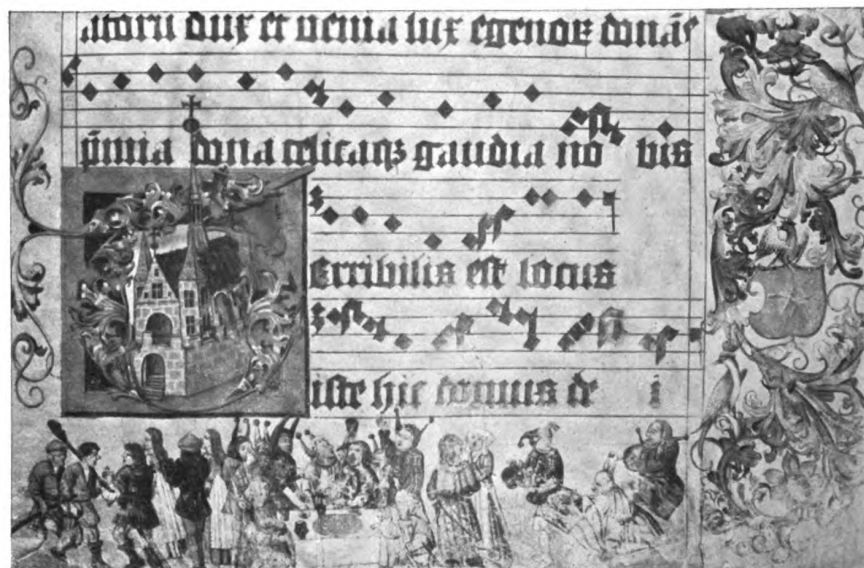 atorū dux et uenia lux egenoꝝ donās
p̄mia dona celicaqꝫ gaudia no bis
Erribilis est locus
iste hic domus de i